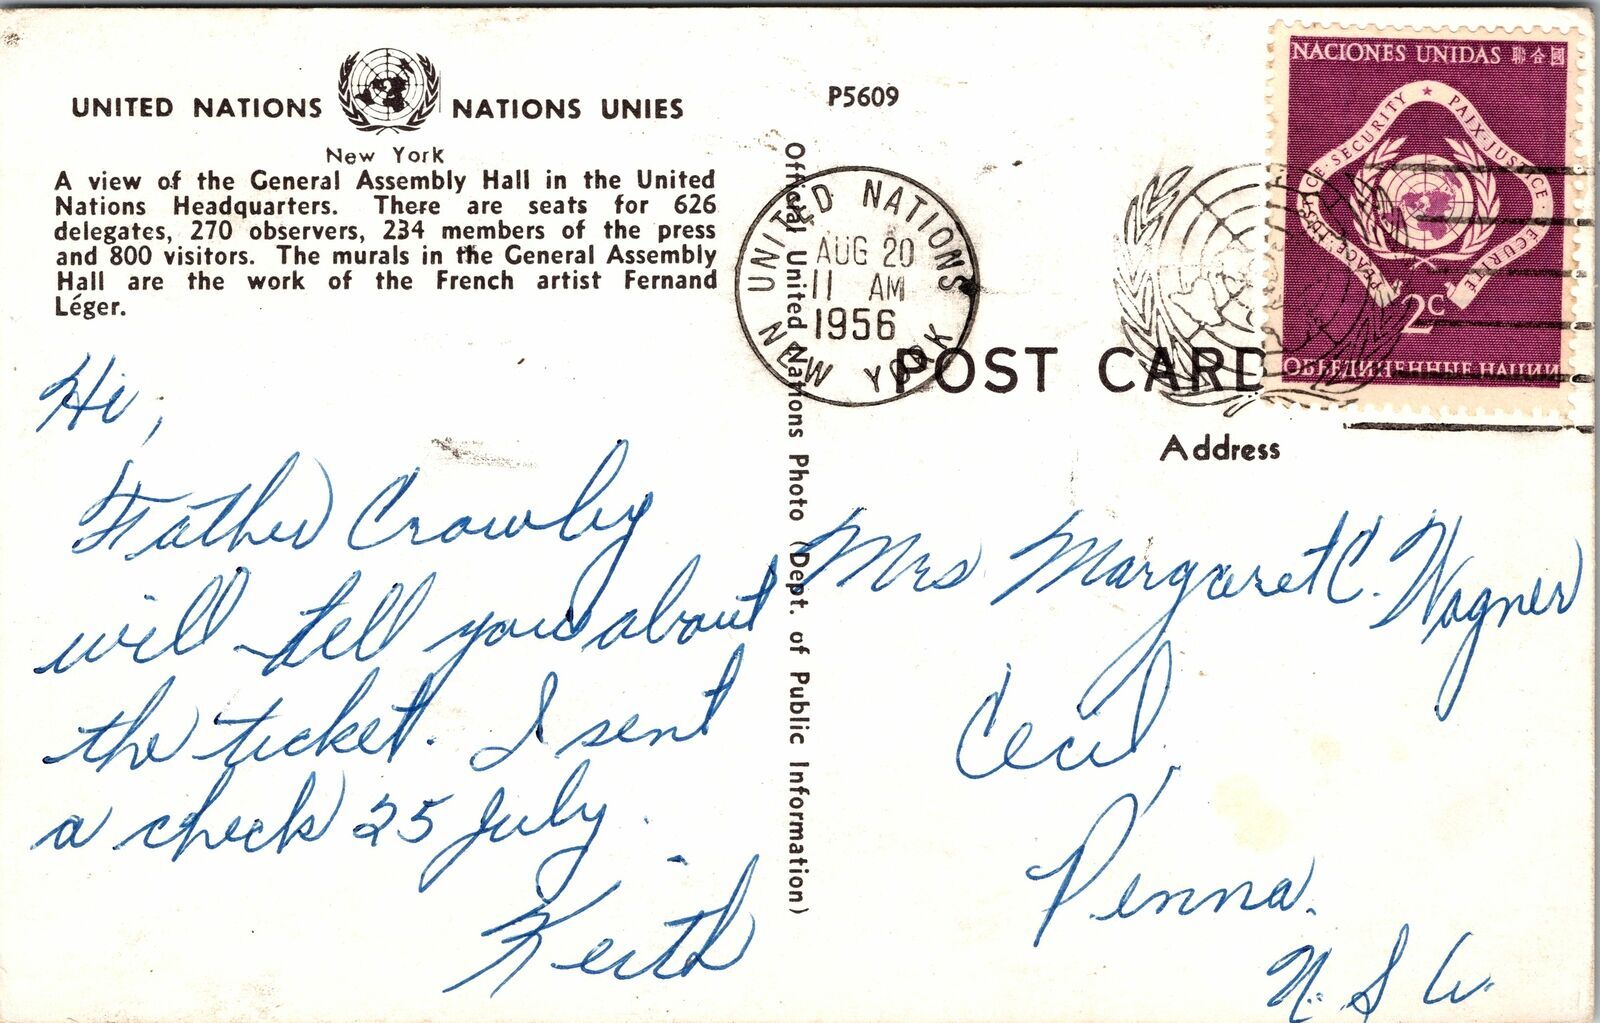 UNITED NATIONS NATIONS UNIES
New York
A view of the General Assembly Hall in the United
Nations Headquarters. There are seats for 626
delegates, 270 observers, 234 members of the press
and 800 visitors. The murals in the General Assembly
Hall are the work of the French artist Fernand
Léger.
Hi,
Father Crowley
will tell you about
the ticket. I sent
a check 25 July.
Keith
Official United Nations Photo (Dept. of Public Information)
P5609
UNITED NATIONS
AUG 20
11 AM
1956
NEW YORK
NACIONES UNIDAS 聯合國
PEACE·JUSTICE·SECURITY ★ PAIX·JUSTICE·SECURITE
2c
ОБЪЕДИНЕННЫЕ НАЦИИ
POST CARD
Address
Mrs Margaret C. Wagner
Cecil,
Penna.